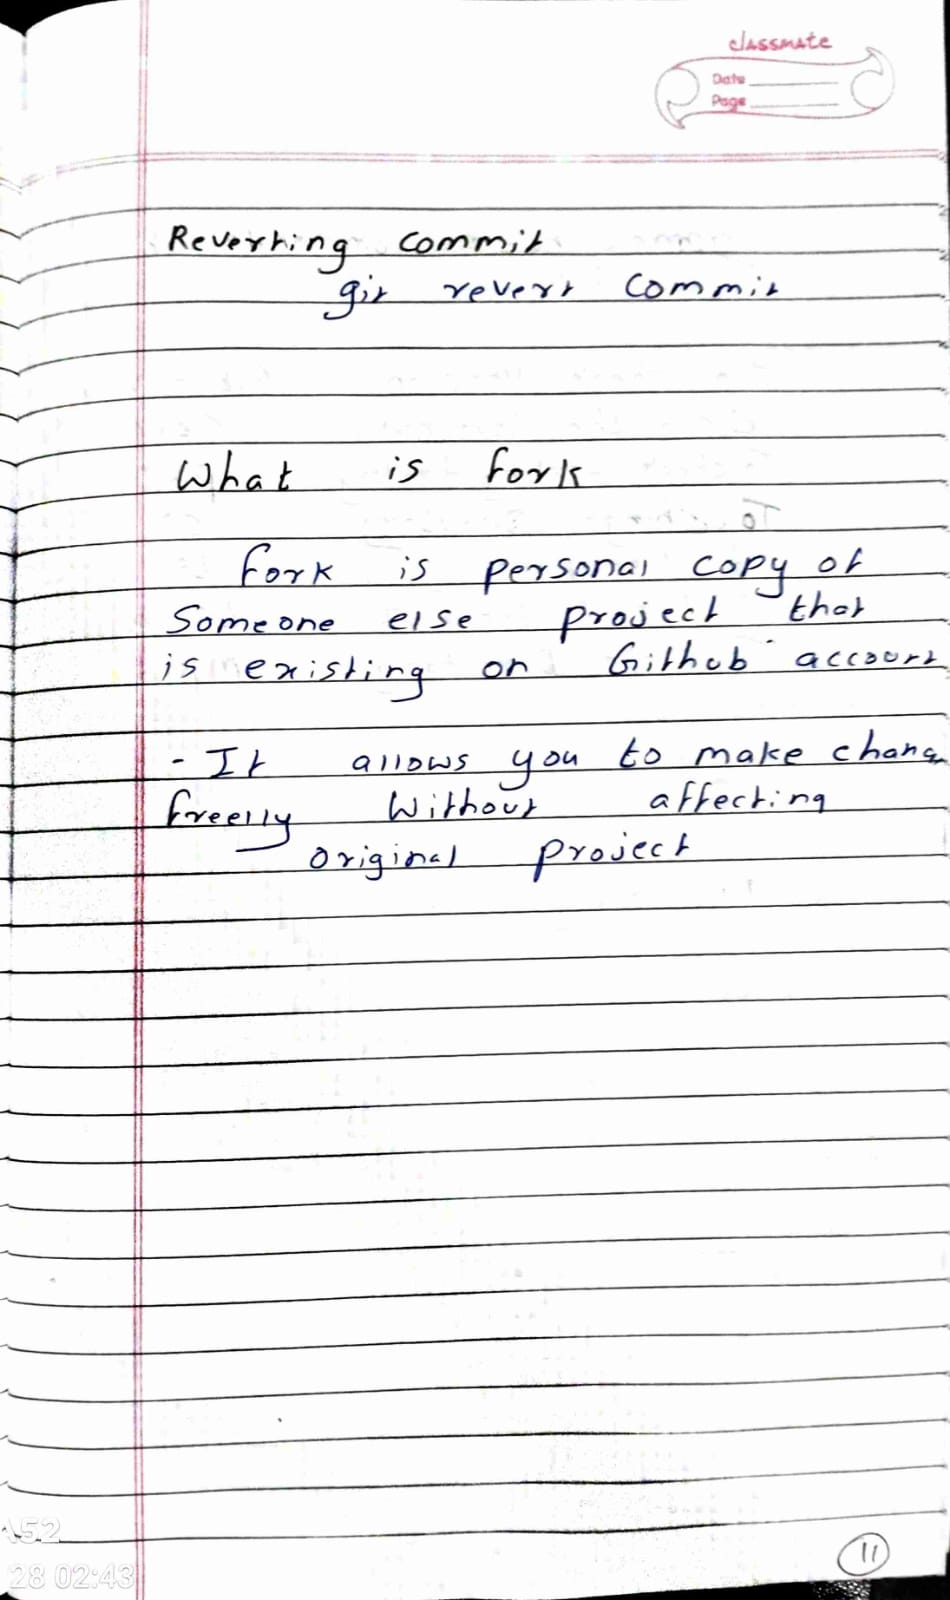 classmate
Date
Page
Reverting commit
git revert commit
What is fork
To
fork is personal copy of
Someone else project that
is existing on Github account
- It allows you to make chang
freelly Without affecting
original project
11
A52
28 02:43